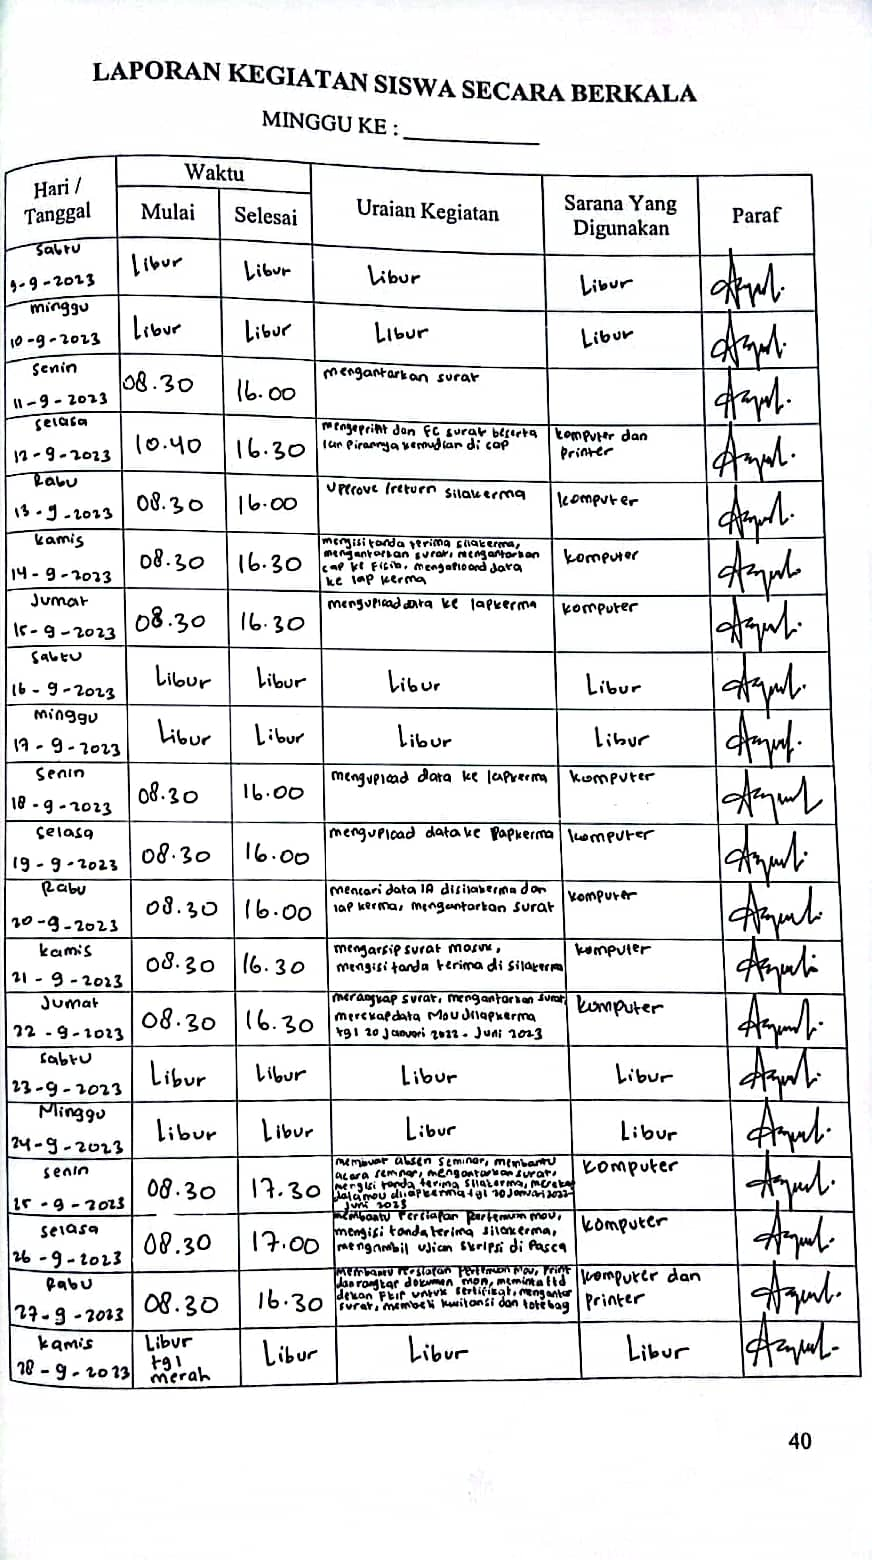 LAPORAN KEGIATAN SISWA SECARA BERKALA
MINGGU KE :
Hari / Tanggal | Waktu Mulai | Waktu Selesai | Uraian Kegiatan | Sarana Yang Digunakan | Paraf
Sabtu 9-9-2023 | Libur | Libur | Libur | Libur
minggu 10-9-2023 | Libur | Libur | Libur | Libur
Senin 11-9-2023 | 08.30 | 16.00 | mengantarkan surat
Selasa 12-9-2023 | 10.40 | 16.30 | mengeprint dan FC surat beserta lampirannya kemudian di cap | komputer dan printer
Rabu 13-9-2023 | 08.30 | 16.00 | Uprove /return silakerma | komputer
kamis 14-9-2023 | 08.30 | 16.30 | mengisi tanda terima silakerma, mengantarkan surat, mengantarkan cap ke Fisip, mengupload data ke lap kerma | komputer
Jumat 15-9-2023 | 08.30 | 16.30 | mengupload data ke lapkerma | komputer
Sabtu 16-9-2023 | Libur | Libur | Libur | Libur
minggu 17-9-2023 | Libur | Libur | Libur | Libur
Senin 18-9-2023 | 08.30 | 16.00 | mengupload data ke lapkerma | komputer
Selasa 19-9-2023 | 08.30 | 16.00 | mengupload data ke lapkerma | komputer
Rabu 20-9-2023 | 08.30 | 16.00 | mencari data IA disilakerma dan lap kerma, mengantarkan surat | komputer
kamis 21-9-2023 | 08.30 | 16.30 | mengarsip surat masuk, mengisi tanda terima di silakerma | komputer
Jumat 22-9-2023 | 08.30 | 16.30 | merangkap surat, mengantarkan surat, merekap data Mou dilapkerma tgl 20 Januari 2022 - Juni 2023 | komputer
Sabtu 23-9-2023 | Libur | Libur | Libur | Libur
Minggu 24-9-2023 | Libur | Libur | Libur | Libur
Senin 25-9-2023 | 08.30 | 17.30 | membuat absen seminar, membantu acara seminar, mengantarkan surat, mengisi tanda terima silakerma, merekap data mou dilapkerma tgl 20 Januari 2022- Juni 2023 | komputer
Selasa 26-9-2023 | 08.30 | 17.00 | membantu persiapan pertemuan mou, mengisi tanda terima silakerma, mengambil ujian skripsi di Pasca | komputer
Rabu 27-9-2023 | 08.30 | 16.30 | Membantu Persiapan Pertemuan Mou, Print dan rangkap dokumen mou, meminta ttd dekan FKIP untuk sertifikat, mengantar surat, membeli kwitansi dan totebag | komputer dan printer
kamis 28-9-2023 | Libur tgl merah | Libur | Libur | Libur
40